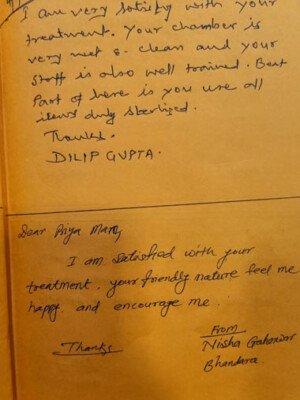 I am very satisfy with your
treatment. Your chamber is
very neet & clean and your
staff is also well trained. Best
Part of here is you use all
items duly sterlized.
Thanks.
DILIP GUPTA.
Dear Priya Mam,
I am satisfied with your
treatment, your friendly nature feel me
happy, and encourage me.
From
Thanks
Nissha
Bhandara.